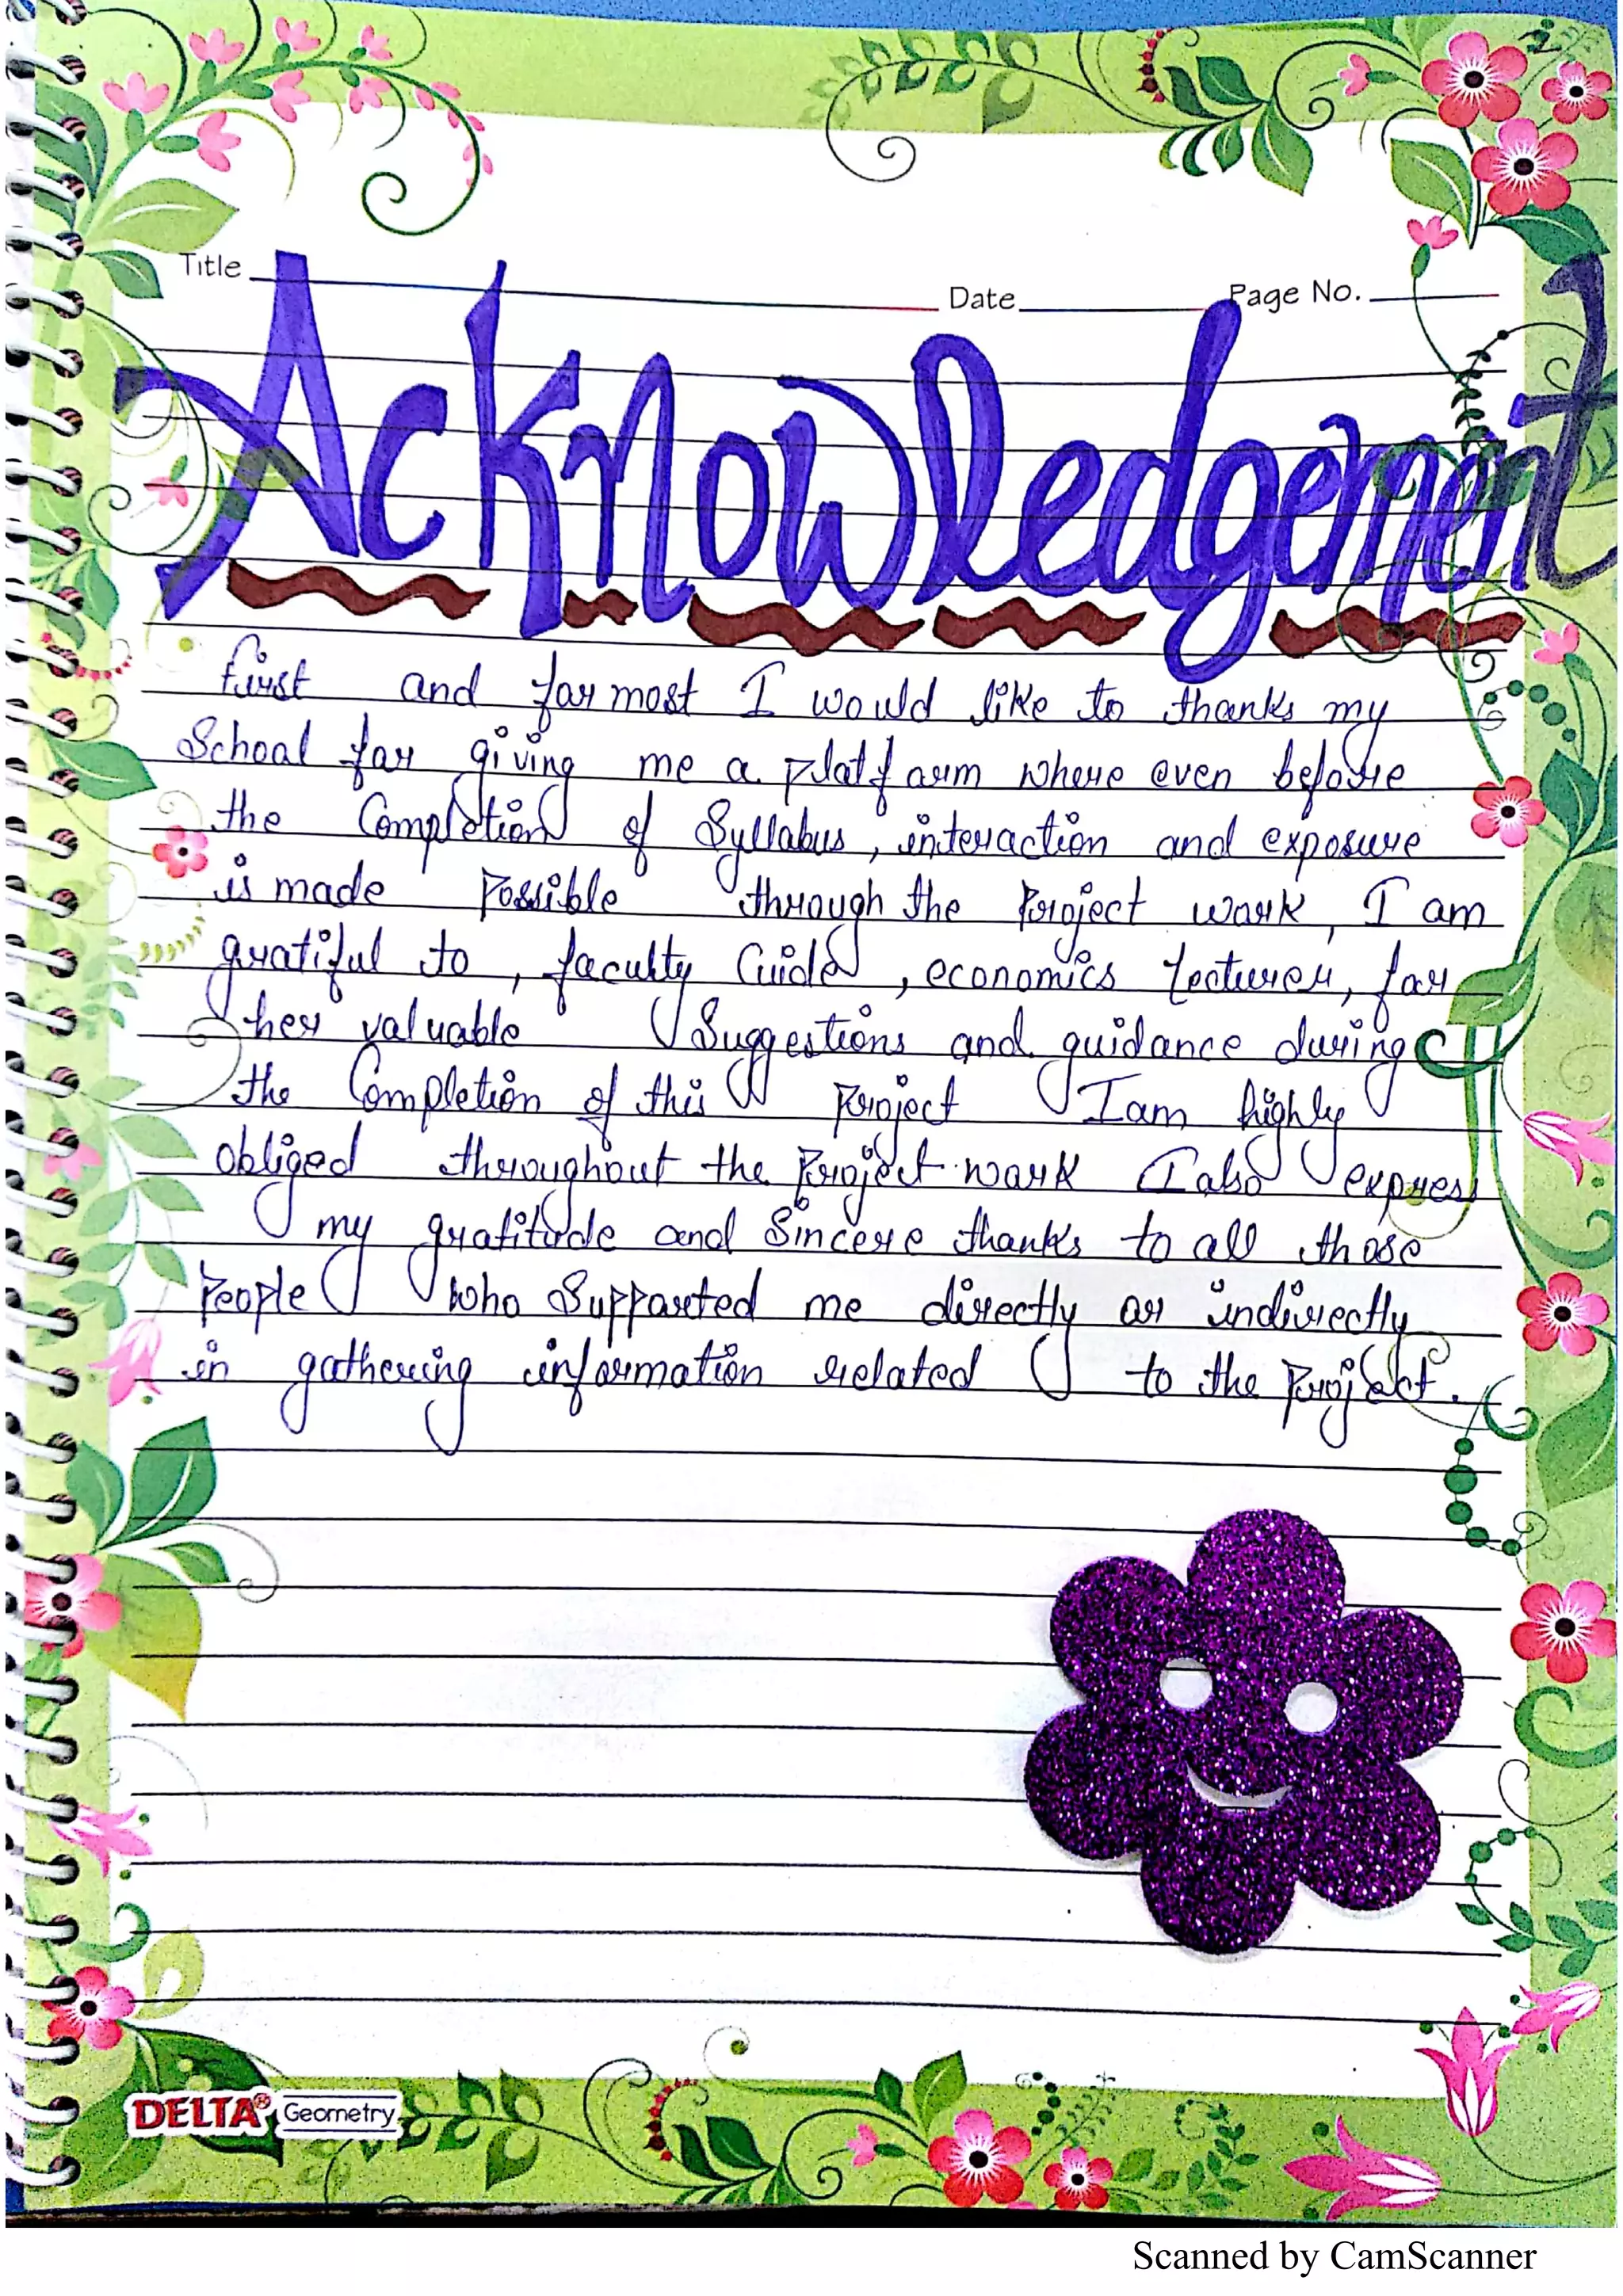 Title Date Page No.
Acknowledgement
first and for most I would like to thanks my
School for giving me a platform where even before
the Completion of Syllabus, interaction and exposure
is made Possible through the Project work, I am
gratiful to, faculty Guide, economics Lecturer, for
her valuable Suggestions and guidance during
the Completion of this Project I am highly
obliged throughout the Project work I also express
my gratitude and Sincere thanks to all those
People who Supported me directly or indirectly
in gathering information related to the Project.
DELTA® Geometry
Scanned by CamScanner